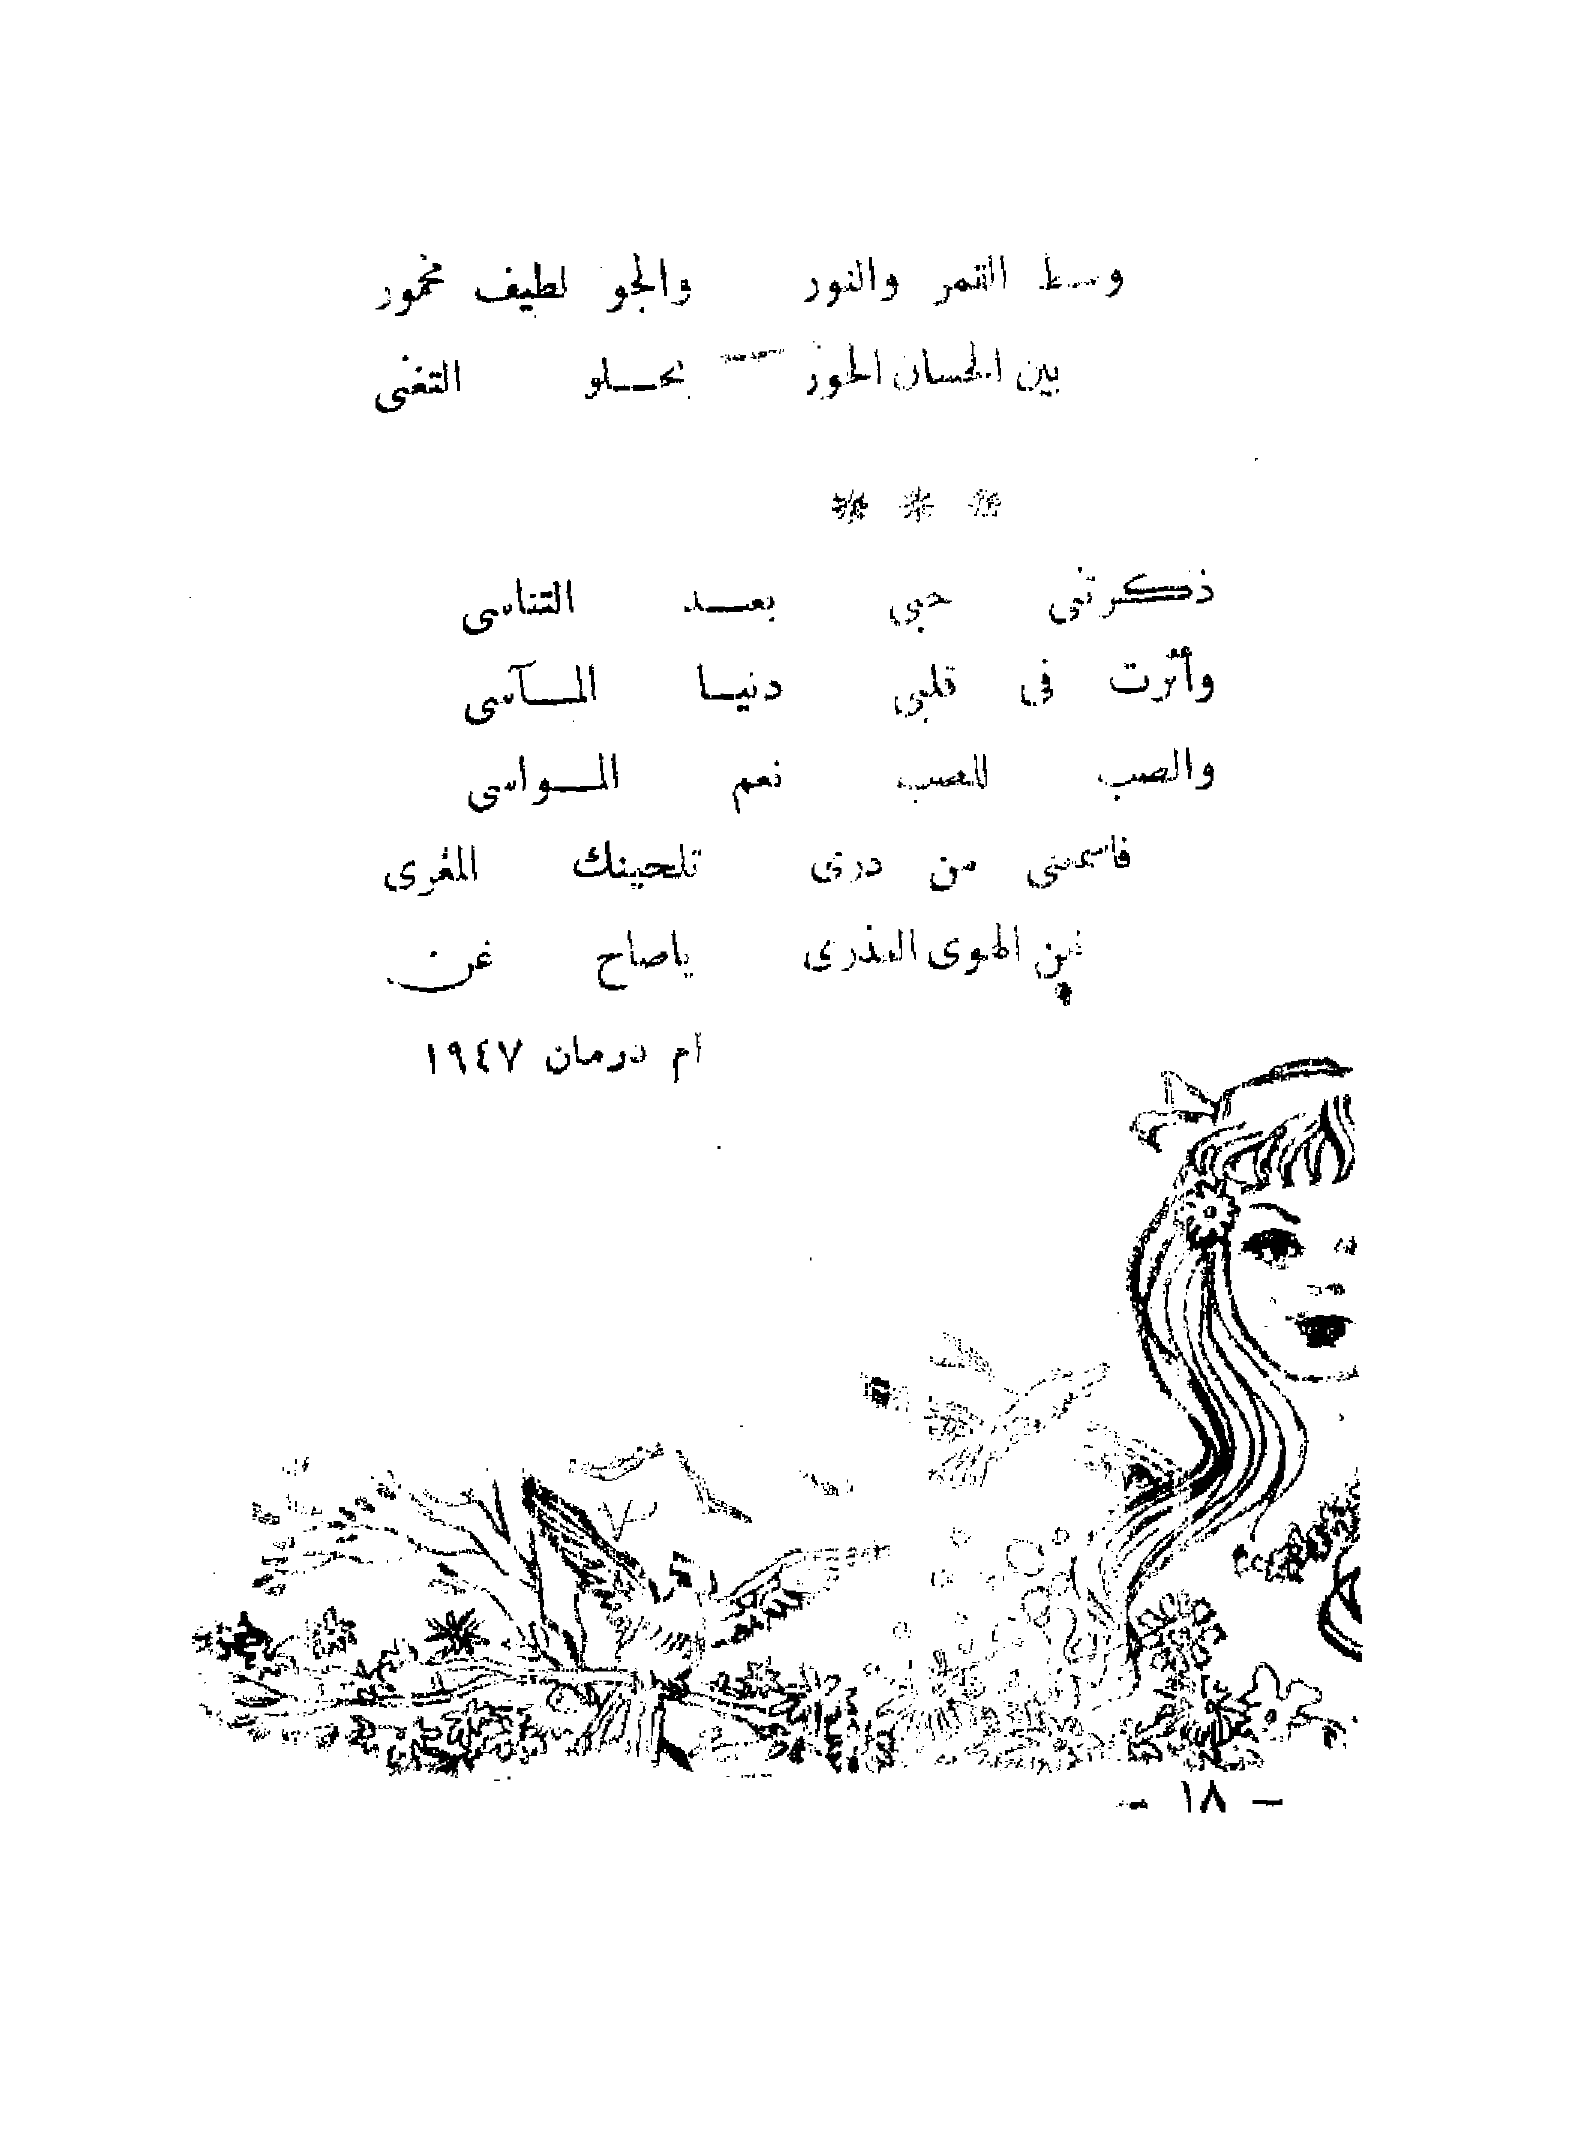 وسط القمر والنور والجو لطيف مخمور
بين الحسان الحور يحلو التغنى
* * *
ذكرتنى حبى بعد التناسى
وأثرت فى قلبى دنيا المآسى
والصب للصب نعم المواسى
من تلحينك المغرى
الهوى العذرى ياصاح غن
أم درمان ١٩٤٧
– ١٨ –